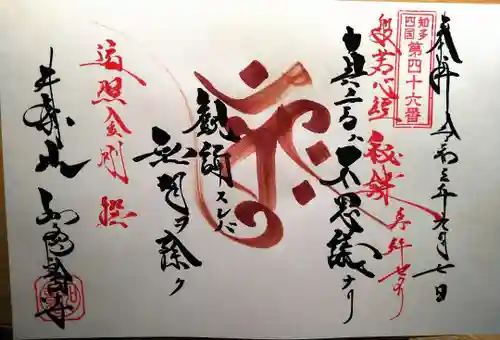 知多
四国
第四十六番
奉拝 令和三年九月七日
般若心経 秘鍵
真言ハ不思議ナリ
観誦スレバ
無明ヲ除ク
遍照金剛 撰
井際山 如意輪寺